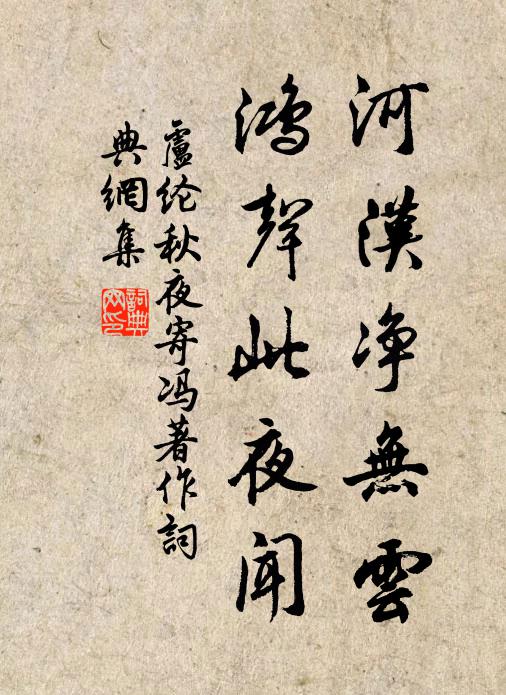 河漢净無雲
鴻聲此夜聞
盧纶秋夜寄冯著作詞
典網集
詞典
网印